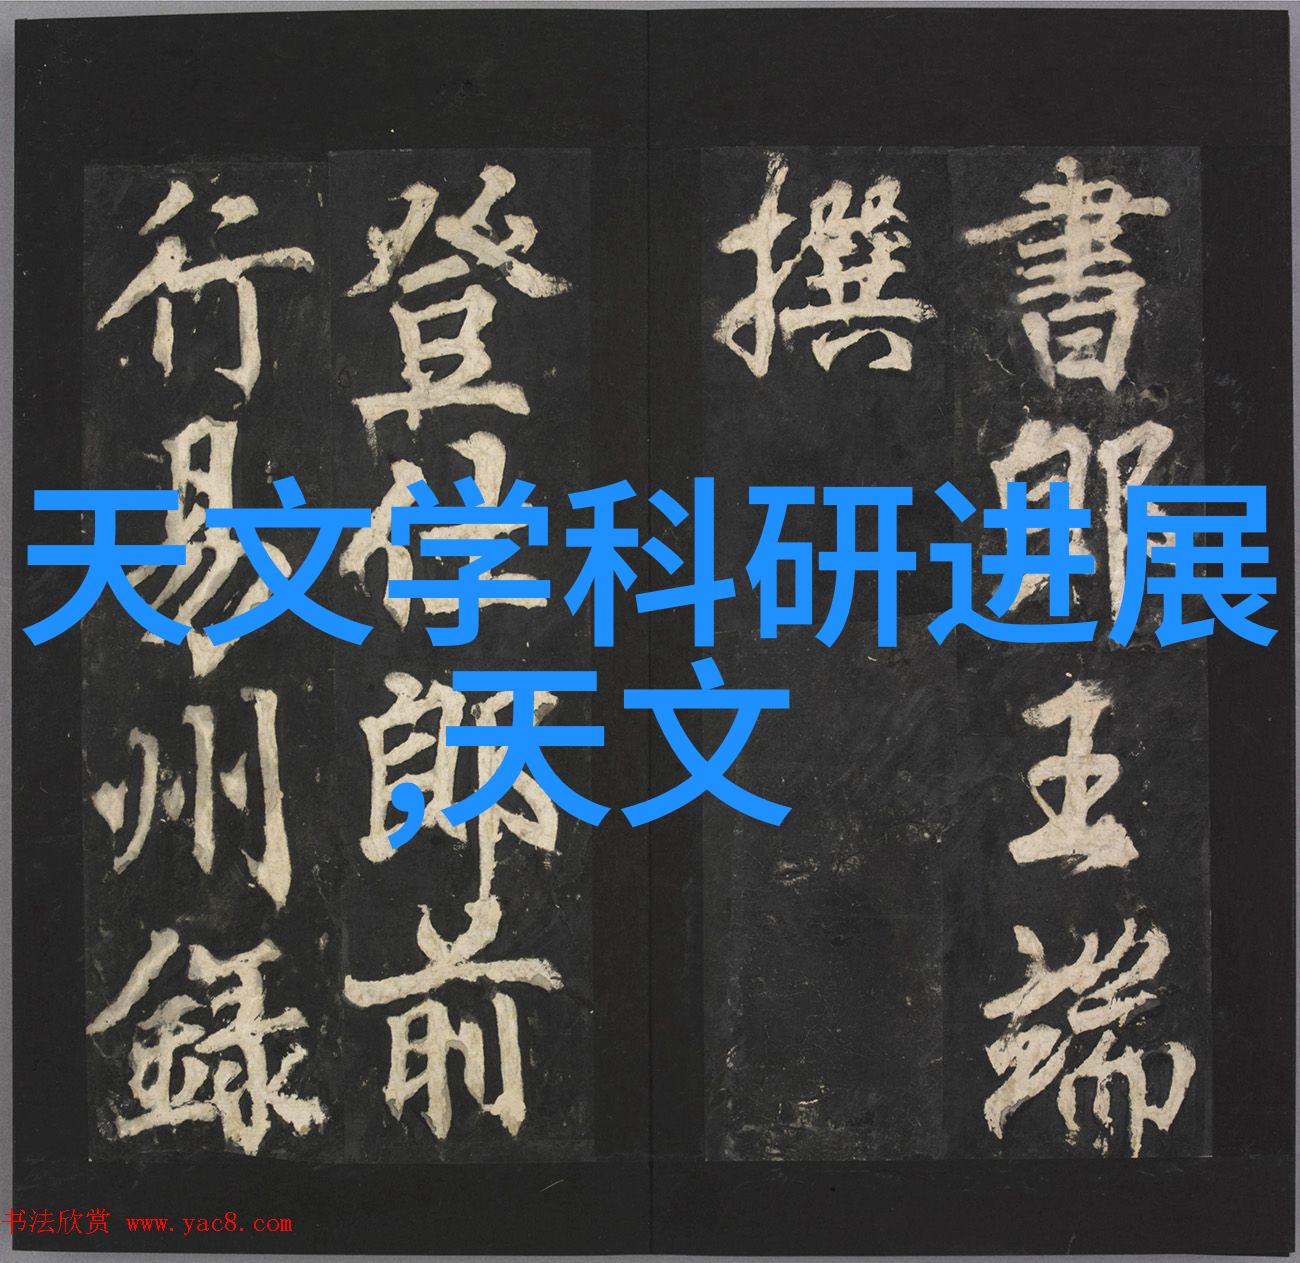 書郎王端
撰
登仕郎前
行易州錄
天文学科研进展
,天文
书法欣赏 www.yac8.com